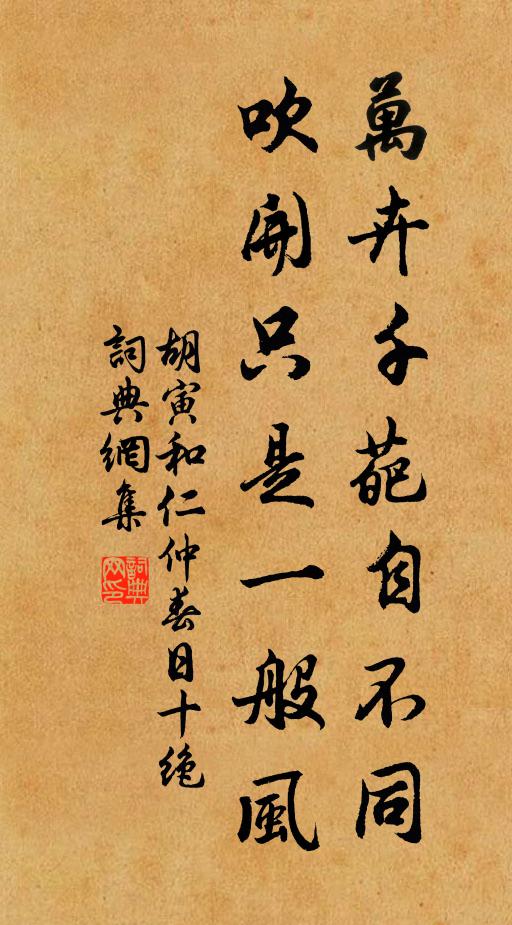 萬卉千葩自不同
吹開只是一般風
胡寅和仁仲春日十绝
詞典網集
詞典网印